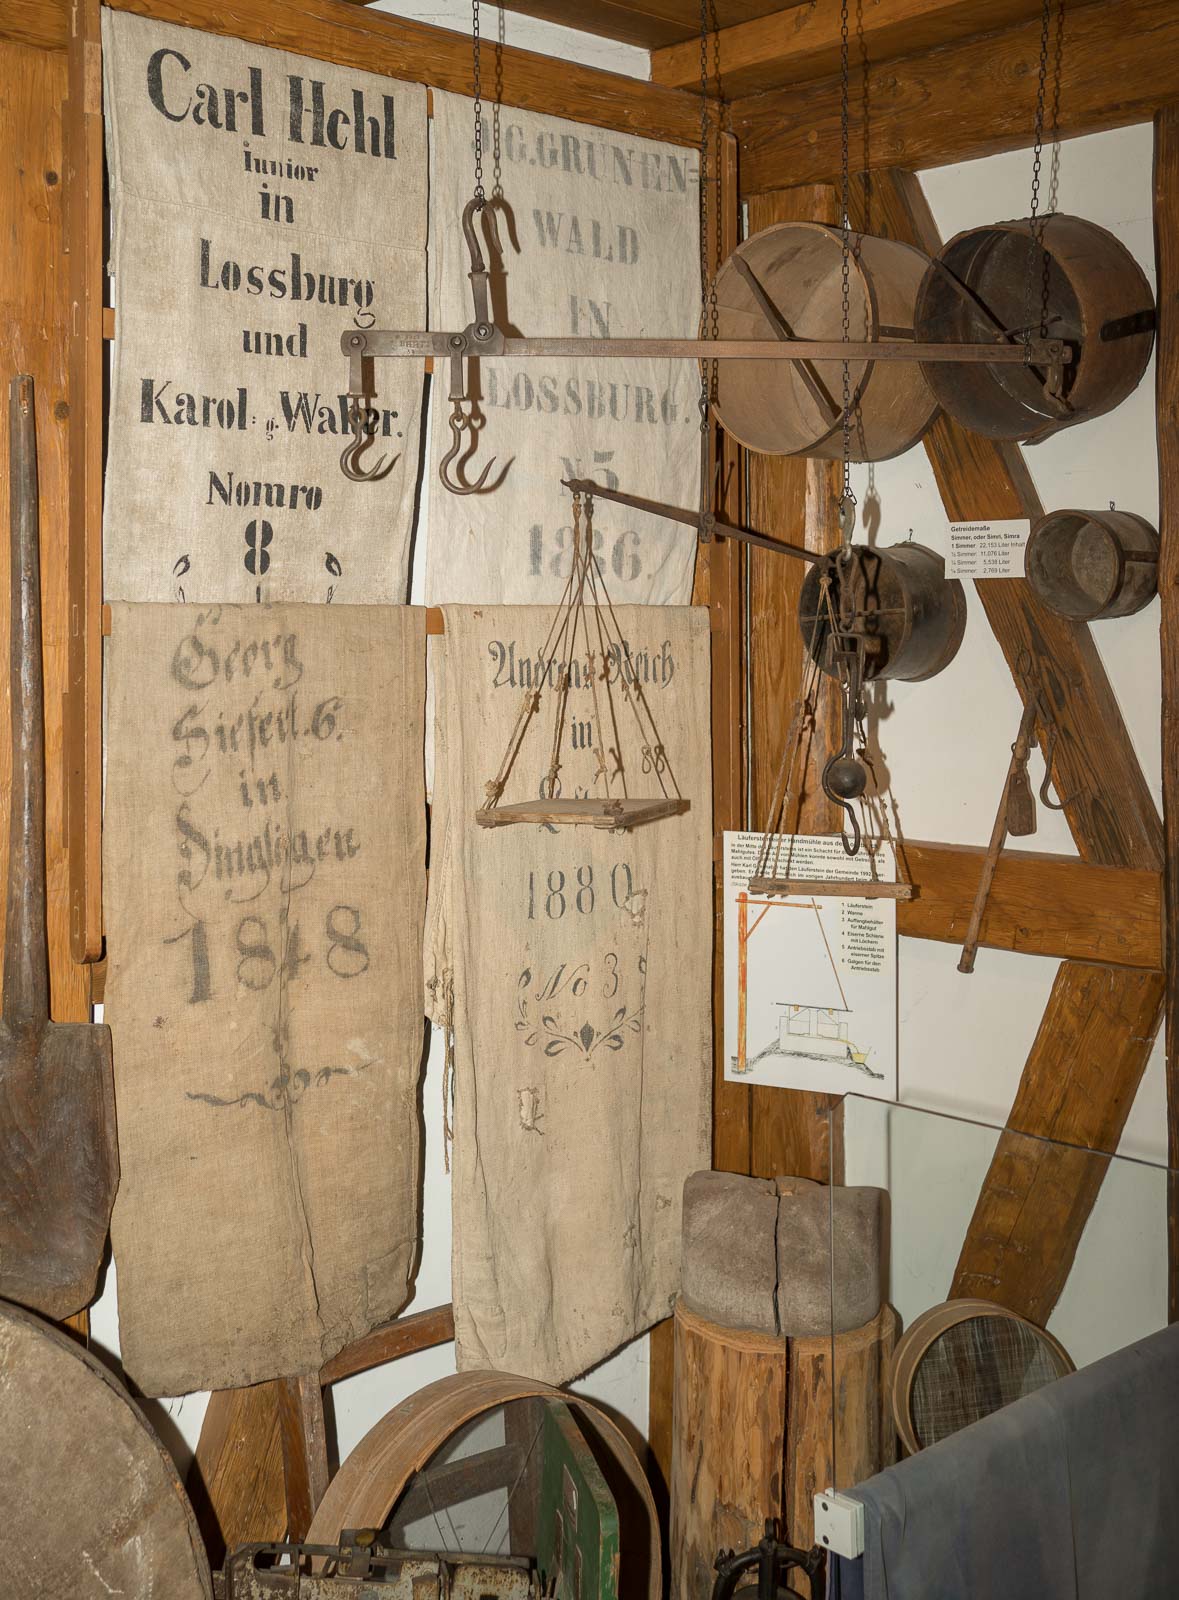 Carl Hehl
Iunior
in
Lossburg
und
Karol: g. Walker.
Nomro
8
J G. GRÜNEN=
WALD
IN
LOSSBURG.
N 5
1886.
Georg
Siefert. 6.
in
1848
Andreas Reich
in
88
1880
No 3
Getreidemaße
Simmer, oder Simri, Simra
1 Simmer: 22,153 Liter Inhalt
½ Simmer: 11,076 Liter
¼ Simmer: 5,538 Liter
⅛ Simmer: 2,769 Liter
Läuferstein einer Handmühle aus de
In der Mitte des Läufersteins ist ein Schacht für die
Mahlgutes. Die Mühlen konnte sowohl mit Getreide, als
auch mit werden.
Herr Karl den Läuferstein der Gemeinde 1992
geben. Er im vorigen Jahrhundert beim
1 Läuferstein
2 Wanne
3 Auffangbehälter
für Mahlgut
4 Eiserne Schiene
mit Löchern
5 Antriebsstab mit
eiserner Spitze
6 Galgen für den
Antriebsstab